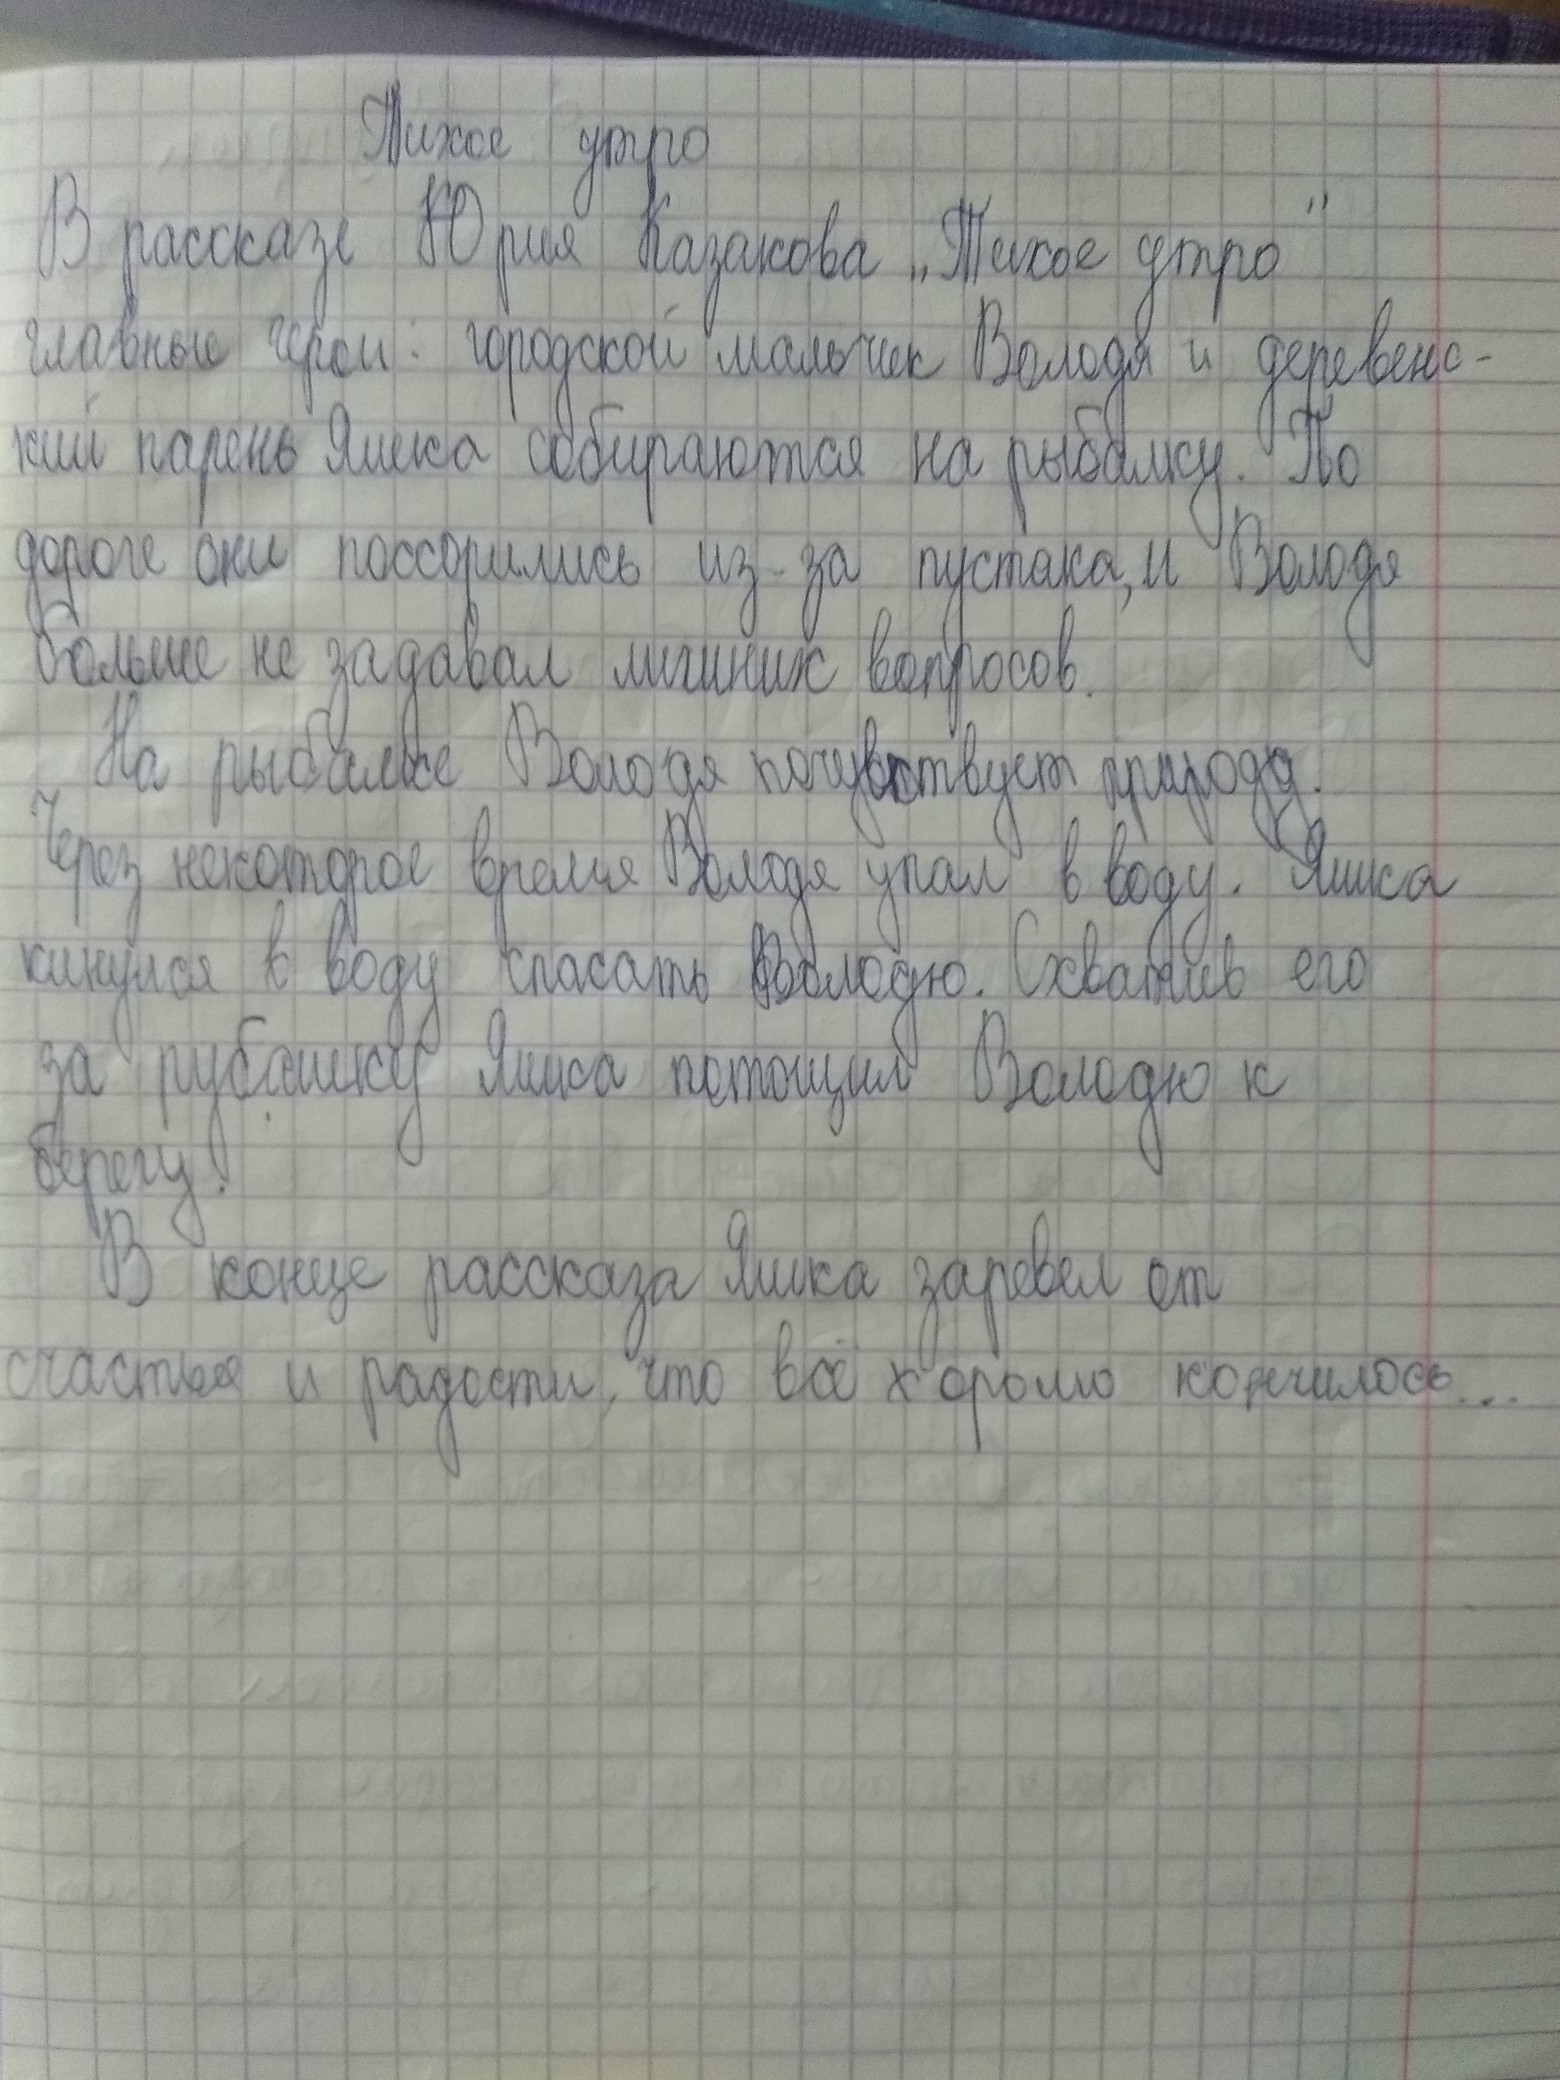 Тихое утро
В рассказе Юрия Казакова „Тихое утро"
главные герои: городской мальчик Володя и деревенс-
кий парень Яшка собираются на рыбалку. По
дороге они поссорились из-за пустяка, и Володя
больше не задавал лишних вопросов.
На рыбалке Володя почувствует природу.
Через некоторое время Володя упал в воду. Яшка
кинулся в воду спасать Володю. Схватив его
за рубашку Яшка потощил Володю к
берегу.
В конце рассказа Яшка заревел от
счастья и радости, что всё хорошо кончилось...